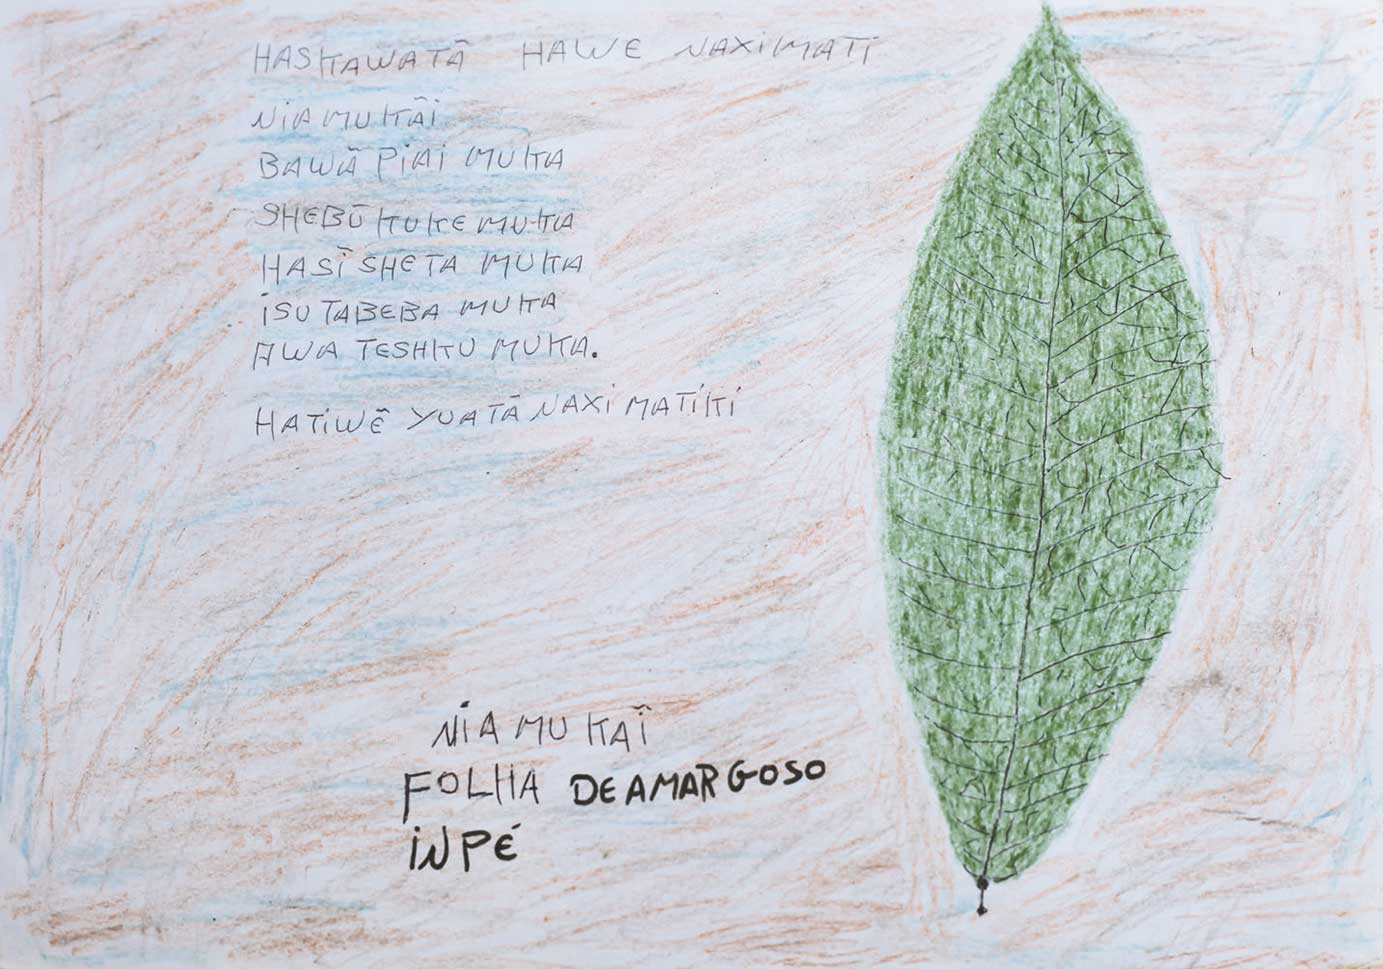 HASKAWATÃ HAWE NAXIMATI
NIA MUKÃI
BAWÃ PIAI MUKA
SHEBŨ KUKE MUKA
HASĨ SHETA MUKA
ISU TABEBA MUKA
AWA TESHKU MUKA.
HATIWẼ YUATÃ NAXI MATIKI
NIA MU KAĨ
FOLHA DE AMARGOSO
INPÉ